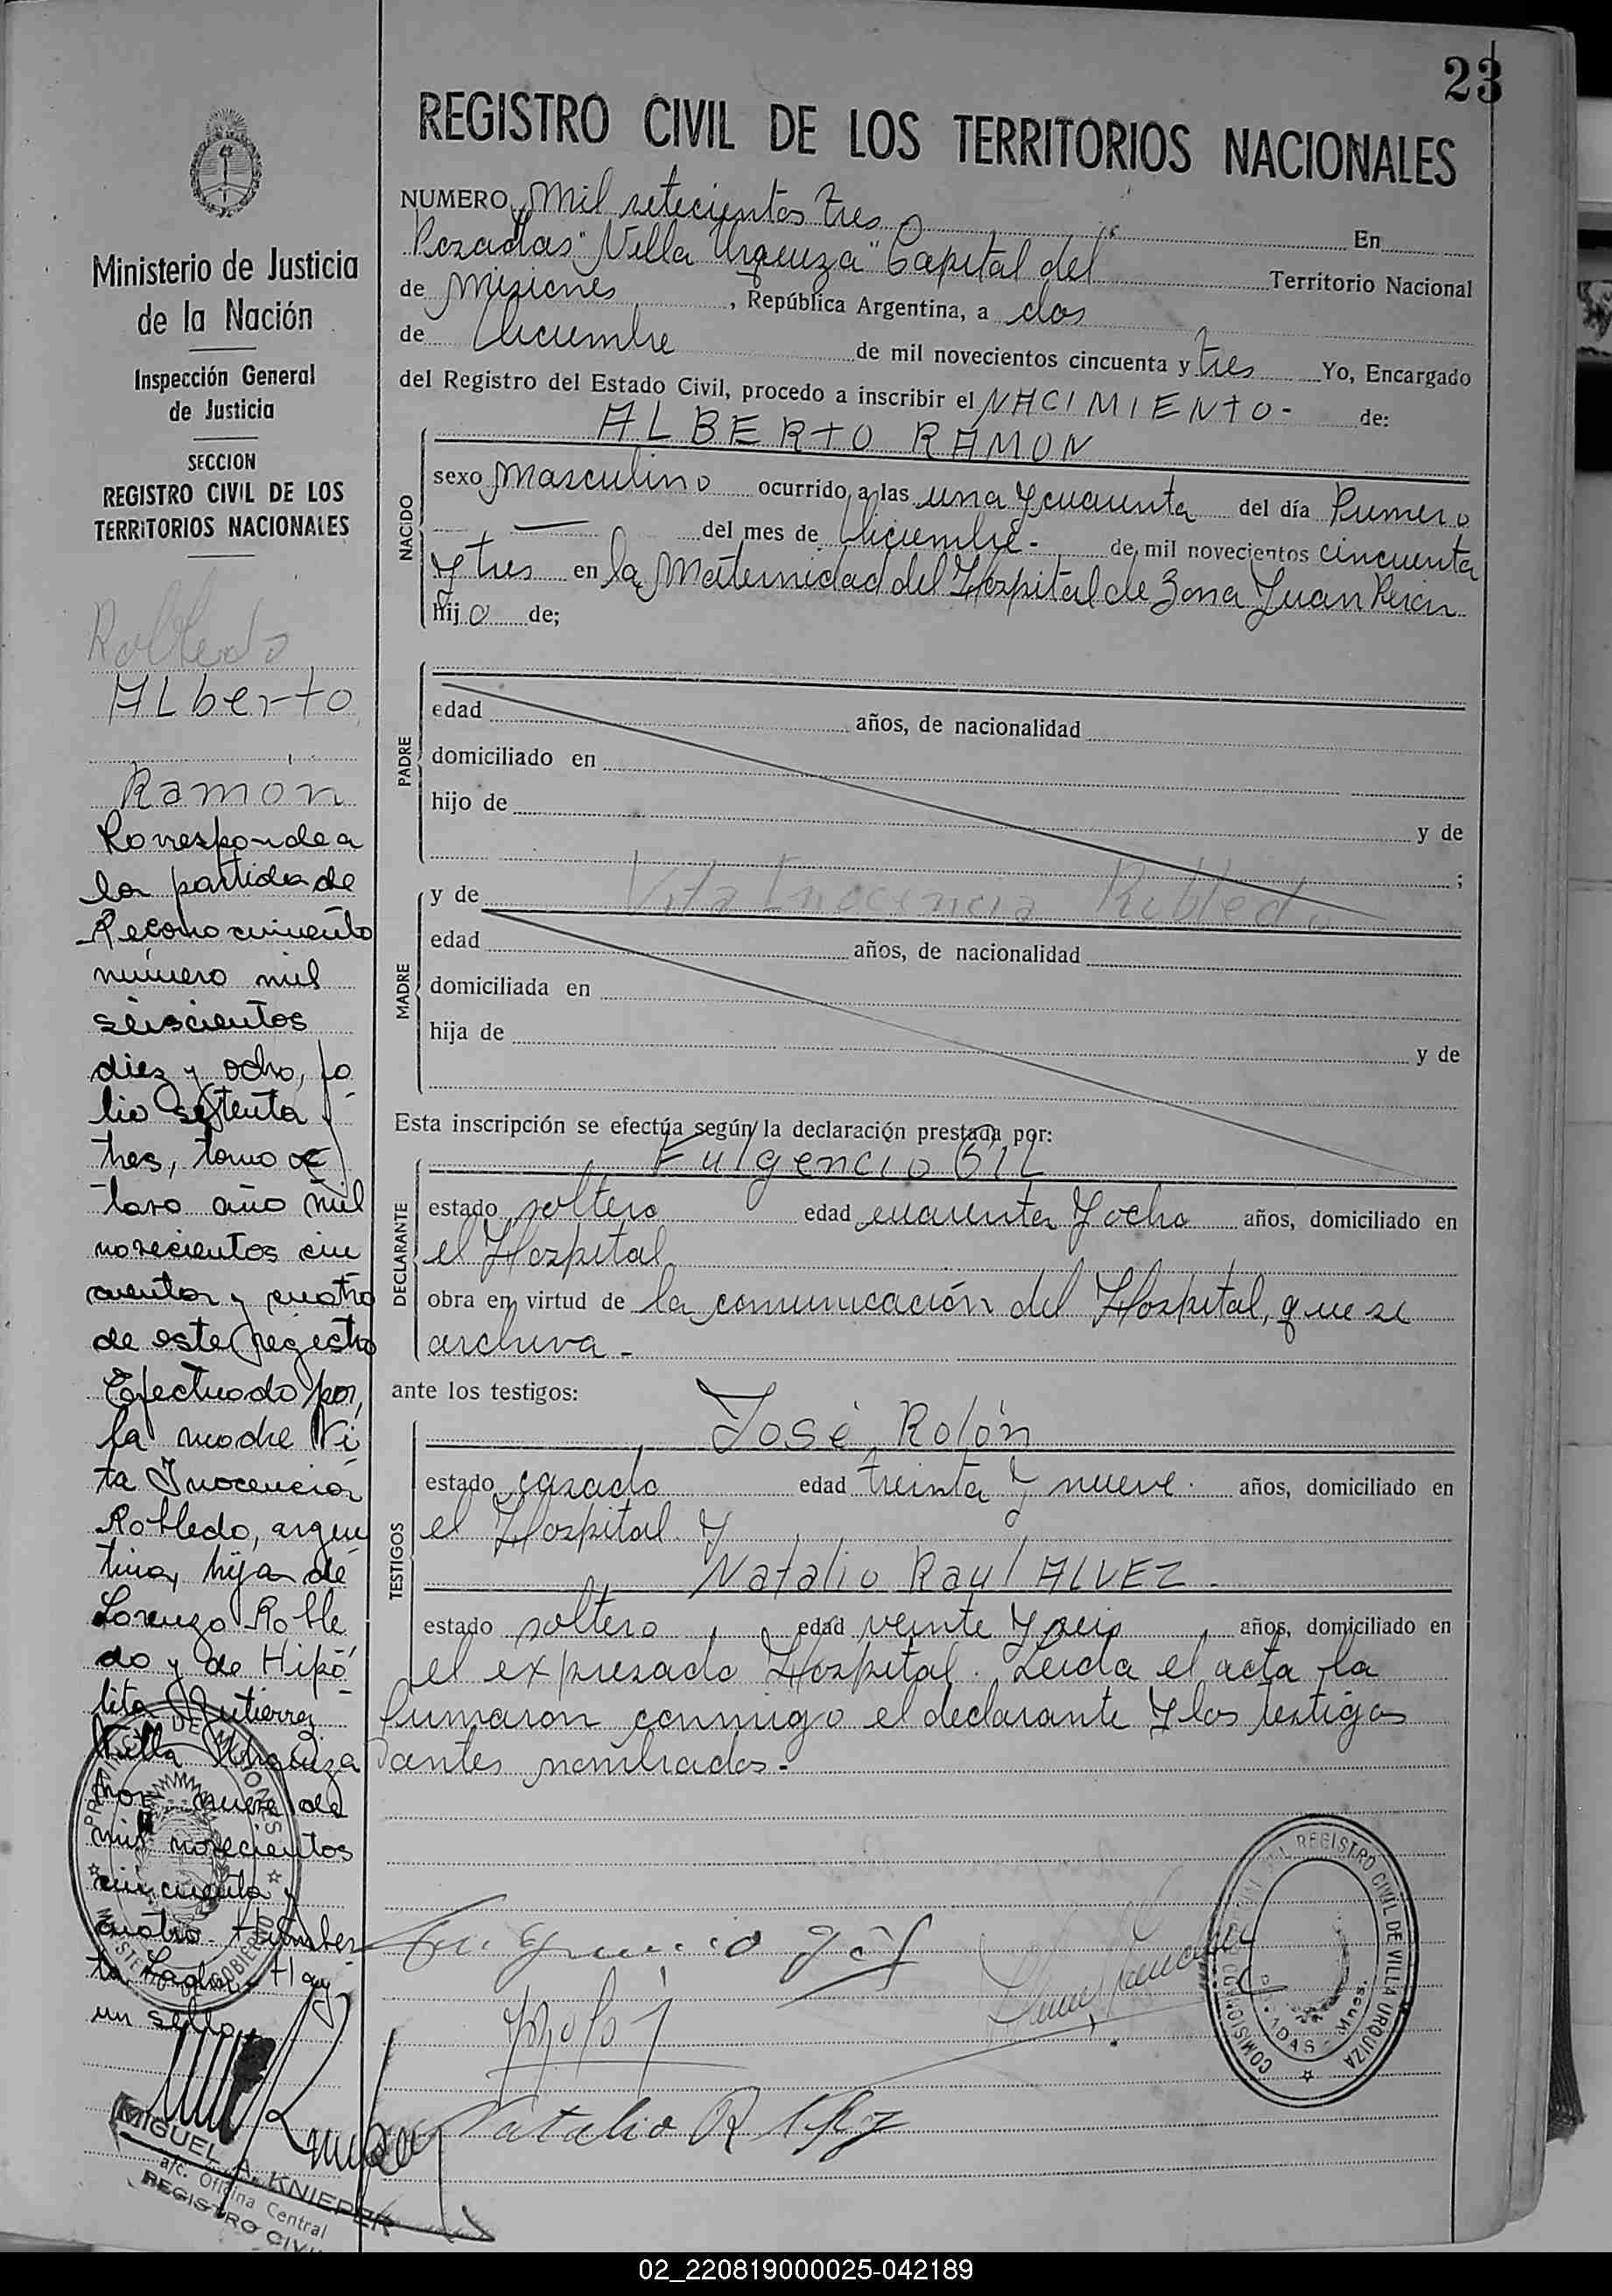 23
REGISTRO CIVIL DE LOS TERRITORIOS NACIONALES
NUMERO Mil setecientos tres En
Posadas "Villa Urquiza" Capital del Territorio Nacional
de Misiones, República Argentina, a dos
de Diciembre de mil novecientos cincuenta y tres Yo, Encargado
del Registro del Estado Civil, procedo a inscribir el NACIMIENTO- de:
ALBERTO RAMON
NACIDO
sexo Masculino ocurrido a las una y cuarenta del día Primero
del mes de Diciembre- de mil novecientos cincuenta
y tres en la Maternidad del Hospital de Zona Juan Perón
hijo de;
PADRE
edad años, de nacionalidad
domiciliado en
hijo de
y de
;
MADRE
y de Vita Inocencia Robledo
edad años, de nacionalidad
domiciliada en
hija de
y de
Esta inscripción se efectúa según la declaración prestada por:
Fulgencio GIL
DECLARANTE
estado soltero edad cuarenta y ocho años, domiciliado en
el Hospital
obra en virtud de la comunicación del Hospital, que se
archiva-
ante los testigos:
José Rolón
TESTIGOS
estado casado edad treinta y nueve. años, domiciliado en
el Hospital y
Natalio Raul ALVEZ-
estado soltero, edad veinte y seis, años, domiciliado en
el expresado Hospital. Leida el acta la
firmaron conmigo el declarante y los testigos
antes nombrados-
Natalio R
REGISTRO CIVIL DE VILLA URQUIZA
Mnes.
Ministerio de Justicia
de la Nación
Inspección General
de Justicia
SECCION
REGISTRO CIVIL DE LOS
TERRITORIOS NACIONALES
Robledo
ALberto
Ramón
Corresponde a
la partida de
Reconocimiento
número mil
seiscientos
diez y ocho, fo
lio setenta y
tres, tomo oc
tavo año mil
novecientos cin
cuenta y cuatro
de este registro
Efectuado por,
la madre Vi
ta Inocencia
Robledo, argen
tina, hija de
Lorenzo Roble
do y de Hipó
lita Gutierrez
Villa Urquiza
nueve de
mil novecientos
cincuenta y
cuatro. Humber
to Hay
un sello
PROVINCIA DE MISIONES
MINISTERIO DE GOBIERNO
MIGUEL A. KNIEPER
a/c. Oficina Central
REGISTRO CIVIL
02_220819000025-042189